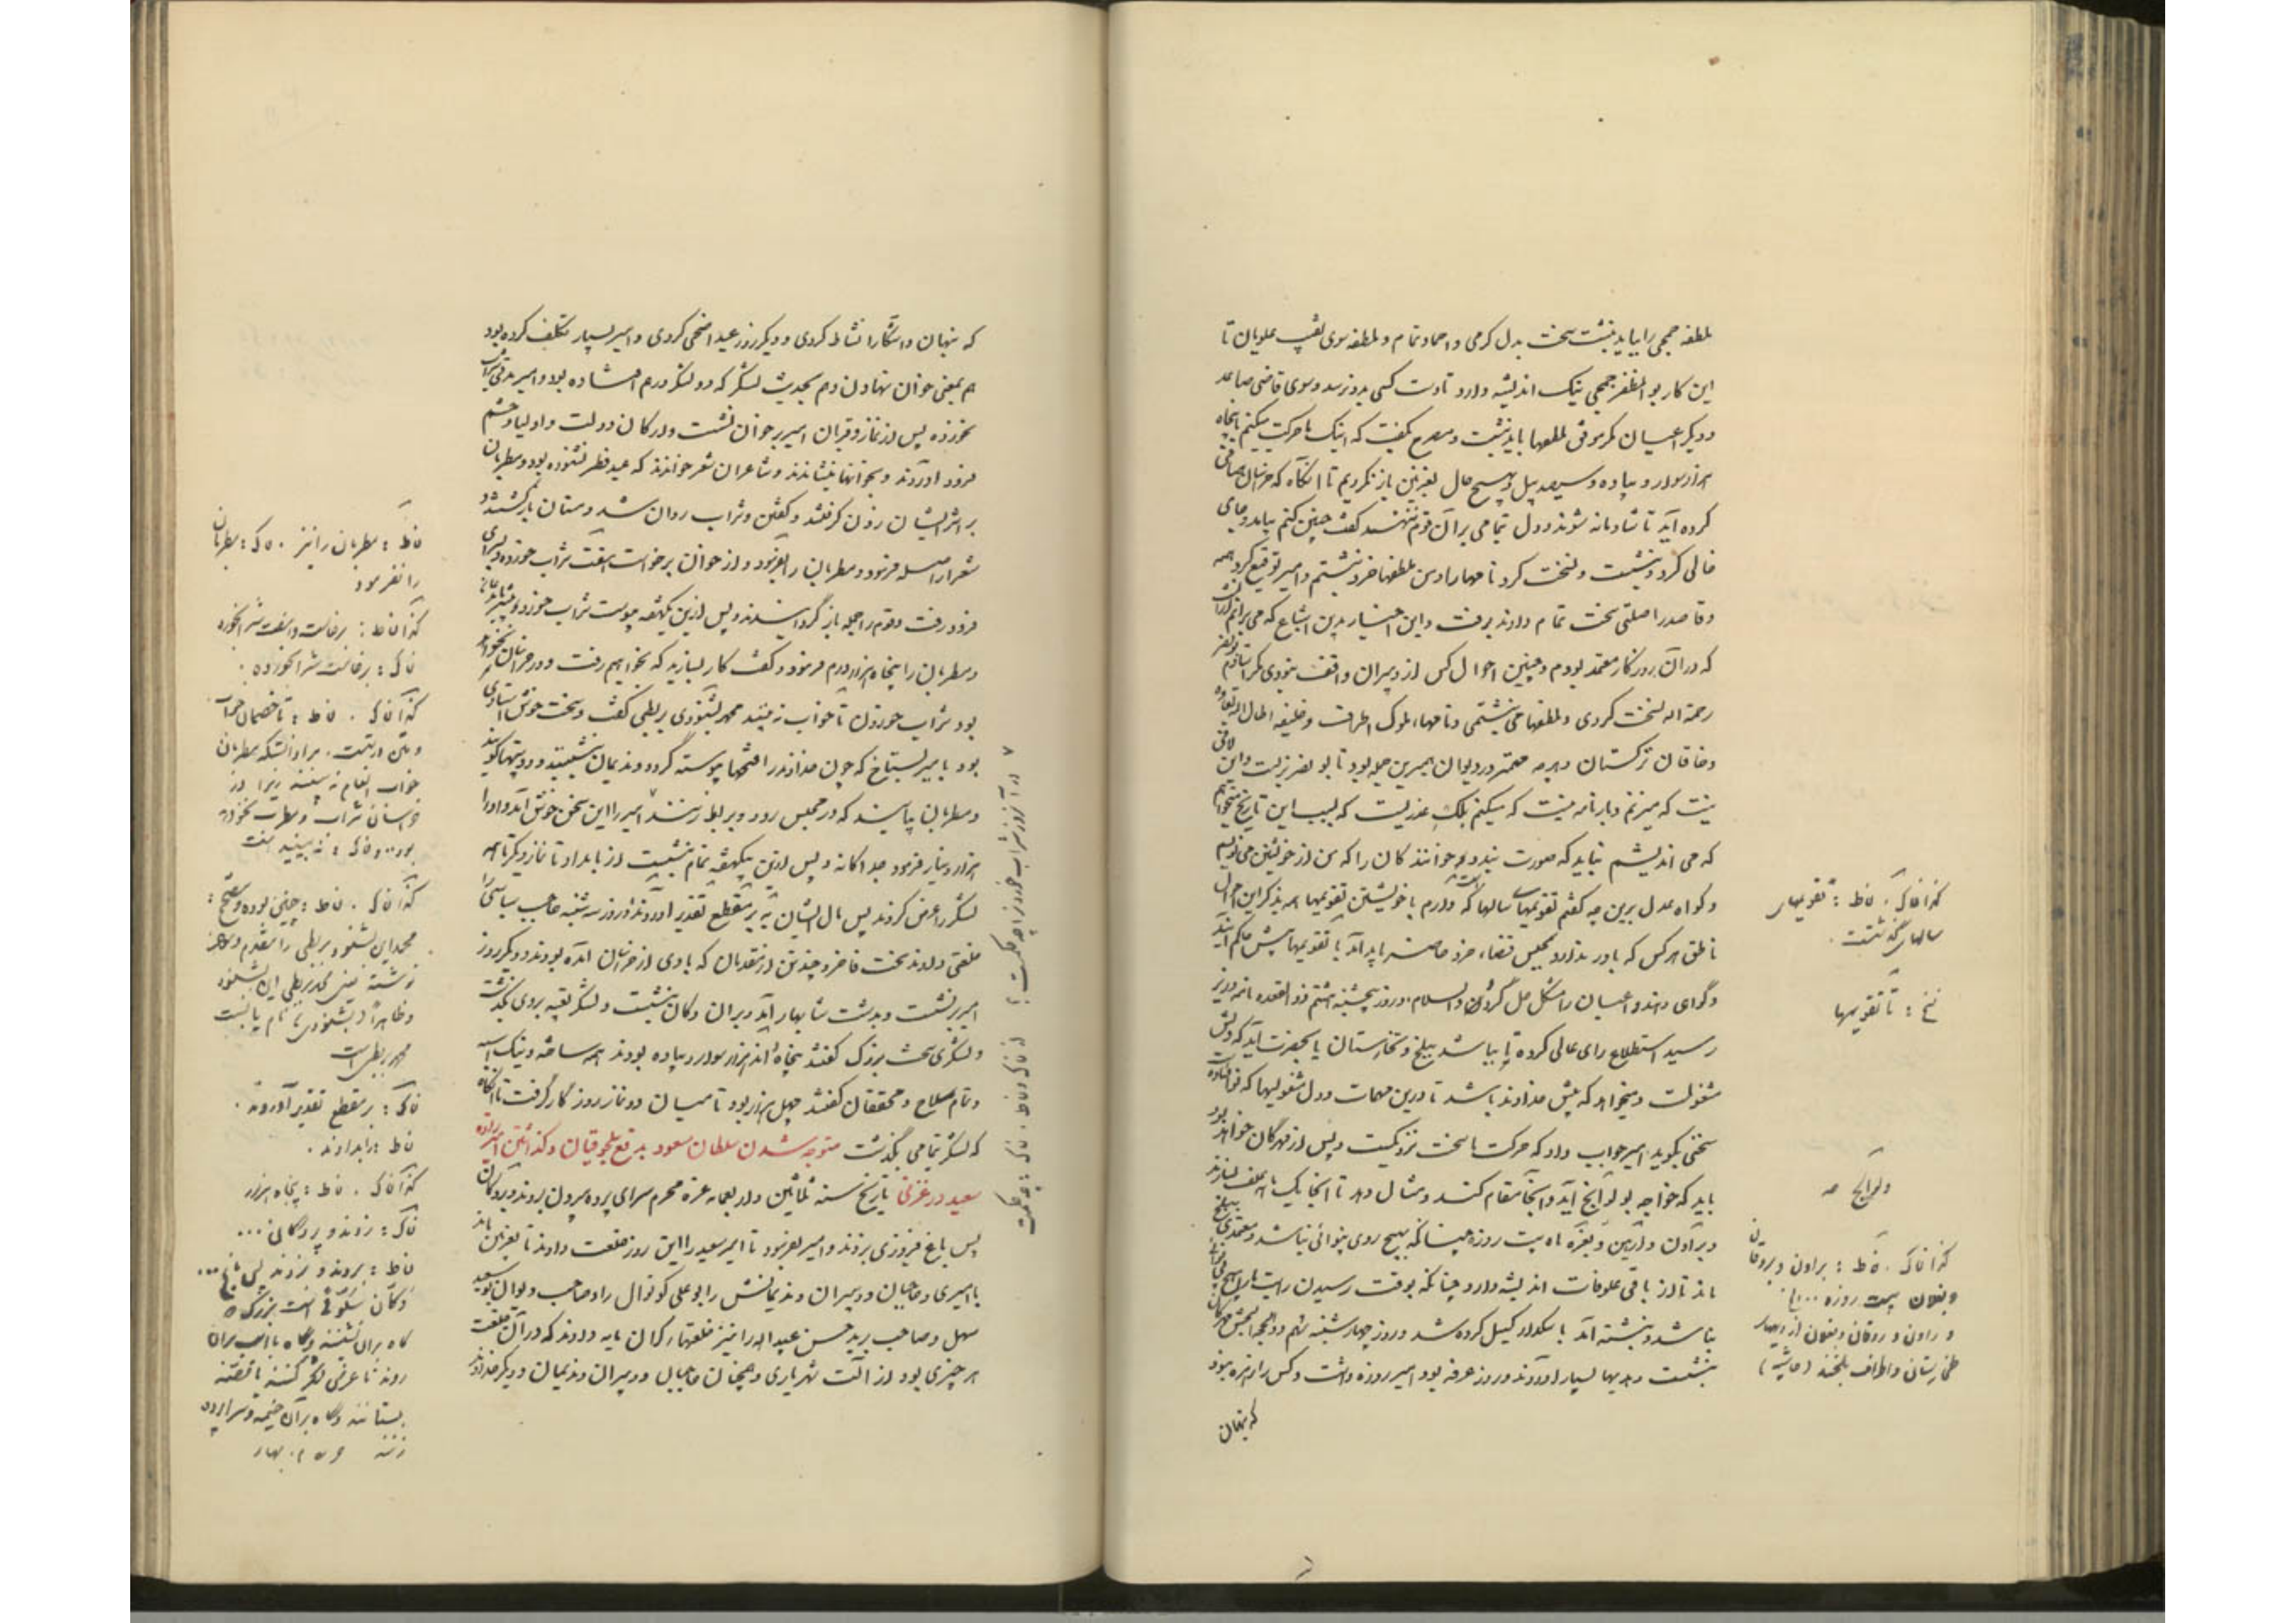 ملطفه جمحی را بباید نبشت سخت بدل گرمی و احماد تمام و ملطفه سوی نقیب علویان تا
این کار بو المظفر جمحی نیک اندیشه دارد تا دست کسی بدو نرسد و سوی قاضی صاعد
و دیگر اعیان مگر موفق ملطفها باید نبشت و مصرح بگفت که اینک ما حرکت میکنیم با پنجاه
هزار سوار و پیاده و سیصد پیل و بهیچ حال بغزنین باز نگردیم تا آنگاه که خراسان صافی
کرده آید تا شادمانه شوند و دل بتمامی بر آن قوم ننهند گفت چنین کنم بیامد و جای
خالی کرد و بنشست و نسخت کرد نامها را و من ملطفها خرد نبشتم و امیر توقیع کرد همه
و قاصد را صلتی سخت تمام دادند برفت و این اخبار بدین اشباع که می‌برانم از آنست
که در آن روزگار معتمد بودم و چنین احوال کس از دبیران واقف نبودی مگر استادم بونصر
رحمة الله نسخت کردی و ملطفها من نبشتمی و نامها ملوک اطراف و خلیفه اطال الله بقاؤه
و خاقان ترکستان و هر چه مهمتر در دیوان همبرین جمله بود تا بو نصر بزیست و این لافی
نیست که میزنم و بارنامه نیست که میکنم بلکه عذریست که بسبب این تاریخ میخواهم
که می اندیشم نباید که صورت بندد خوانندگان را که من از خویشتن می نویسم
و گواه عدل برین چه گفتم تقویمها سالهاست که دارم با خویشتن تقویمها همه بذکر این احوال
ناطق هر کس که باور ندارد بمجلس قضاء خرد حاضر باید آمد تا تقویمها پیش حاکم آیند
و گواهی دهند و اعیان را مشکل حل گردد و السلام و روز پنجشنبه هشتم ذو القعده نامه وزیر
رسید استطلاع رای عالی کرده تا بباشد ببلخ و تخارستان یا بحضرت آید که دلش
مشغولست و میخواهد که پیش خداوند باشد تا درین مهمات و دل مشغولیها که نو افتاده است
سخنی بگوید امیر جواب داد که حرکت ما سخت نزدیکست و پس از مهرگان خواهد بود
باید که خواجه بولوالج آید و آنجا مقام کند و مثال دهد تا آنجا یک ماهه علف بسازند
و براون و آرین و بغره ماه بیست روزه چنانکه بهیچ روی بینوائی نباشد و معتمدی ببلخ
ماند تا از باقی علوفات اندیشه دارد چنانکه بوقت رسیدن رایت ما هیچ بینوائی
نباشد و نبشته آمد باسکدار گسیل کرده شد و روز چهار شنبه نهم ذو الحجه بجشن مهرگان
بنشست و هدیها بسیار آوردند و روز عرفه بود امیر روزه داشت و کس را زهره نبود
که بنهان
کذا فا ک . فا ط : تقویمهای
سالهای گذشتست .
نخ : تا تقویمها
ولوالج صه
کذا فا ک . فا ط : براون و بروقان
و بغلان بیست روزه ....
و راون و روقان و بغلان از دیهای
طخارستان و اطراف بلخند (حاشیه)
که پنهان و آشکارا نشاط کردی و دیگر روز عید اضحی کردی و امیر بسیار تکلف کرده بود
هم بمعنی خوان نهادن و هم بحدیث لشکر که دو لشکر درهم افتاده بود و امیر مدتی شراب
نخورده پس از نماز و قربان امیر بر خوان نشست و ارکان دولت و اولیا و حشم
فرود آوردند و بخوانها بنشاندند و شاعران شعر خواندند که عید فطر نشنوده بود و مطربان
بر اثر ایشان زدن گرفتند و گفتن و شراب روان شد و مستان باز گشتند
شعرا را صله فرمود و مطربان را بفرمود و از خوان برخاست هفت شراب خورده بسرای
فرود رفت و قوم را جمله باز گردانیدند و پس ازین یکهفته پیوست شراب خورد بیشتر با ندیمان
و مطربان را پنجاه هزار درم فرمود و گفت کار بسازید که بخواهیم رفت و در خراسان نخواهد
بود شراب خوردن تا خواب نه بینند محمد بشنودی بربطی گفت و سخت خوش استادی
بود با امیر بستاخ که چون خداوند را فتحها پیوسته گردد و ندیمان بنشینند و دو بیتها گویند
و مطربان بیایند که در مجلس رود و بربط زنند امیر را این سخن خوش آمد و او را
هزار دینار فرمود جداگانه و پس ازین یکهفته تمام بنشست از بامداد تا نماز دیگر تا همه
لشکر را عرض کردند پس مال ایشان به بر مقطع نقدیر آوردند و روز سه شنبه حاجب سباشی را
خلعتی دادند سخت فاخر و چند تن از مقدمان که با وی از خراسان آمده بودند و دیگر روز
امیر بر نشست و بدشت شابهار آمد و بران دکان بنشست و لشکر بتعبیه بروی بگذشت
و لشکری سخت بزرگ گفتند پنجاه و اند هزار سوار و پیاده بودند همه ساخته و نیک اسبه
و تمام سلاح و محققان گفتند چهل هزار بود تا میان دو نماز روزگار گرفت تا آنگاه
که لشکر بتمامی بگذشت متوجه شدن سلطان مسعود بدفع سلجوقیان و گذاشتن امیرزاده
سعید در غزنی تاریخ سنه ثلثین و اربعمائه غره محرم سرای پرده بیرون بردند و بر دکان
پس باغ فیروزی بزدند و امیر بفرمود تا امیر سعید را این روز خلعت دادند تا بغزنین ماند
بامیری و حاجبان و دبیران و ندیمانش را بو علی کوتوال را و صاحب دیوان بو سعید
سهل و صاحب برید حسن عبید الله را نیز خلعتهاء گران مایه دادند که در آن خلعت
هر چیزی بود از آلت شهریاری و همچنان حاجبان و دبیران و ندیمان و دیگر خداوند
فا ط : مطربان را نیز . فا ک : مطربان
را نفرمود
کذا فا ط : برخاست و هفت شراب خورده
فا ک : برخاست شراب خورده .
کذا فا ک . فا ط : تا خصمان خواب
خواب انعام نه بینند زیرا در
خراسان شراب و مطرب نخواهد
بود .. و فا ک : نه بینید گفت
کذا فا ک . فا ط : چنین بوده و صحیح :
محمد این بشنود بربطی را مقدم و مؤخر
نوشته یعنی محمد بربطی این بشنود
و ظاهراً (بشنودی) نام یا نسبت
محمد بربطی است
فا ک : بر مقطع تقدیر آوردند .
فا ط : را بدادند .
کذا فا ک . فا ط : پنجاه هزار
فا ک : زدند و بر دکانی ...
فا ط : بردند و بزدند پس باغ ...
گاه بران نشینند و گاه با اسب بران
روند تا عرض لشکر کنند یا قصه
بستانند و گاه بر آن خیمه و سراپرده
زنند م . بهار